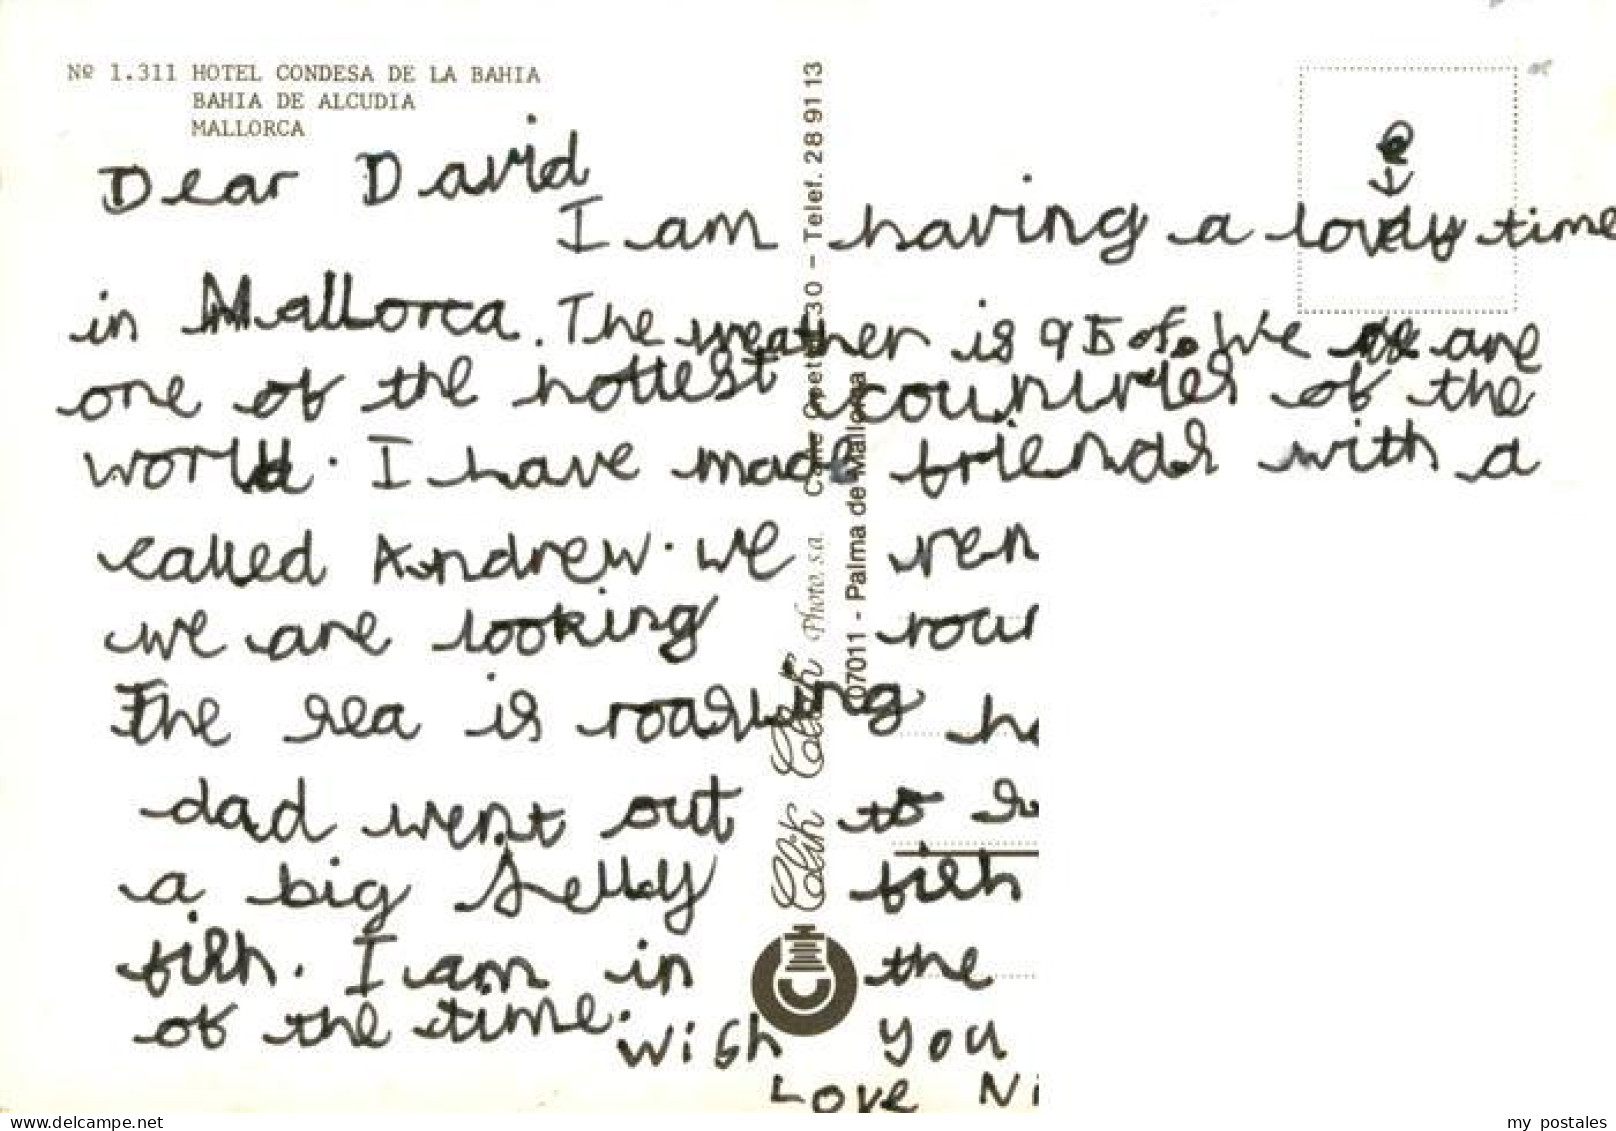 Nº 1.311 HOTEL CONDESA DE LA BAHIA
BAHIA DE ALCUDIA
MALLORCA
Dear David
I am having a lovely time
in Mallorca. The weather is 95 of. We are
one of the hottest countries of the
world. I have made friends with a
called Andrew. we ren
we are looking roun
The sea is roasting ho
dad went out to
a big Jelly fish
fish. I am in the
of the time.
wish you
Love Ni
07011 - Palma de Mallorca
30 - Telef. 28 91 13
Photo, s.a.
Clik Clak
my-postales.delcampe.net
my postales